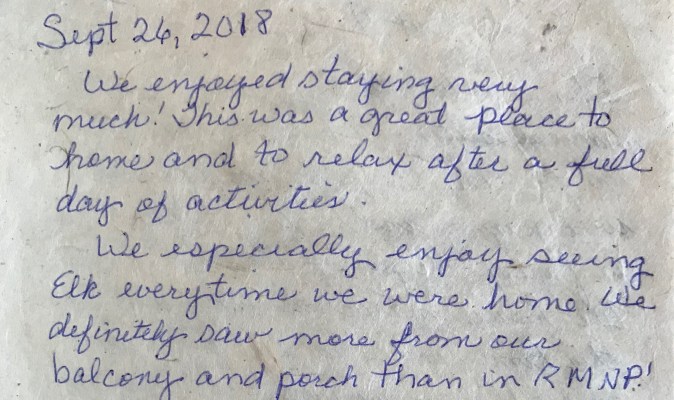 Sept 26, 2018
We enjoyed staying very
much! This was a great place to
home and to relax after a full
day of activities.
We especially enjoy seeing
Elk everytime we were home. We
definitely saw more from our
balcony and porch than in RMNP!